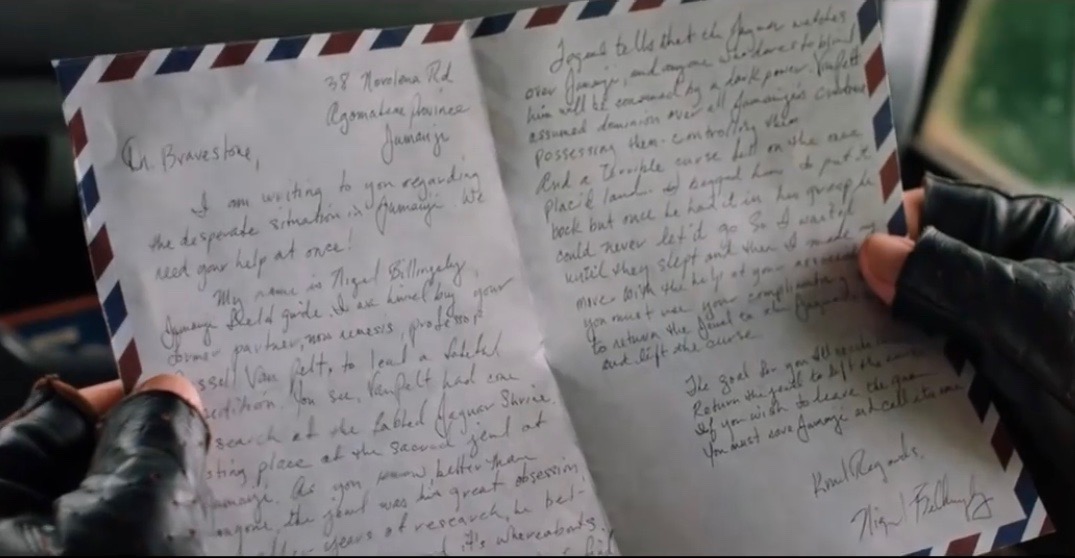 38 Novolena Rd
Agomabene Province
Jumanji
Dr. Bravestone,
I am writing to you regarding
the desperate situation in Jumanji. We
need your help at once!
My name is Nigel Billingsley,
Jumanji field guide. I was hired by your
former partner, now nemesis, professor
Russel Van Pelt, to lead a fateful
expedition. You see, VanPelt had come
search of the fabled Jaguar Shrine.
sting place of the sacred jewel of
Jumanji. As you know better than
anyone, the jewel was his great obsession
after years of research, he bel-
it's whereabouts.
Legend tells that the Jaguar watches
over Jumanji, and anyone who dares to blind
him will be consumed by a dark power. VanPelt
assumed dominion over all Jumanji's creatures
possessing them - controlling them
And a terrible curse fell on the once
placid land. I begged him to put it
back but once he had it in his grasp he
could never let it go So I waited
until they slept and then I made my
move With the help of your
you must use your complimentary
to return the Jewel to the Jaguar's
and lift the curse
The goal for you I'll recite
Return the jewel to lift the curse
If you wish to leave the game
You must save Jumanji and call its name
Kind Regards,
Nigel Billingsley